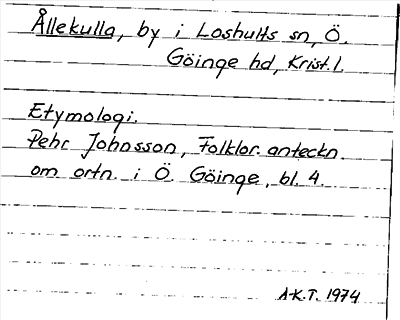 Ållekulla, by i Loshults sn, Ö.
Göinge hd, Krist. l.
Etymologi.
Pehr Johnsson, Folklor. anteckn.
om ortn. i Ö. Göinge, bl. 4.
A.K.T. 1974